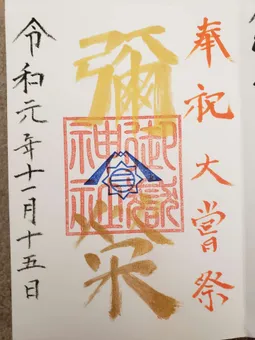 奉祝大嘗祭
彌栄
御嶽
神社
三
令和元年十一月十五日